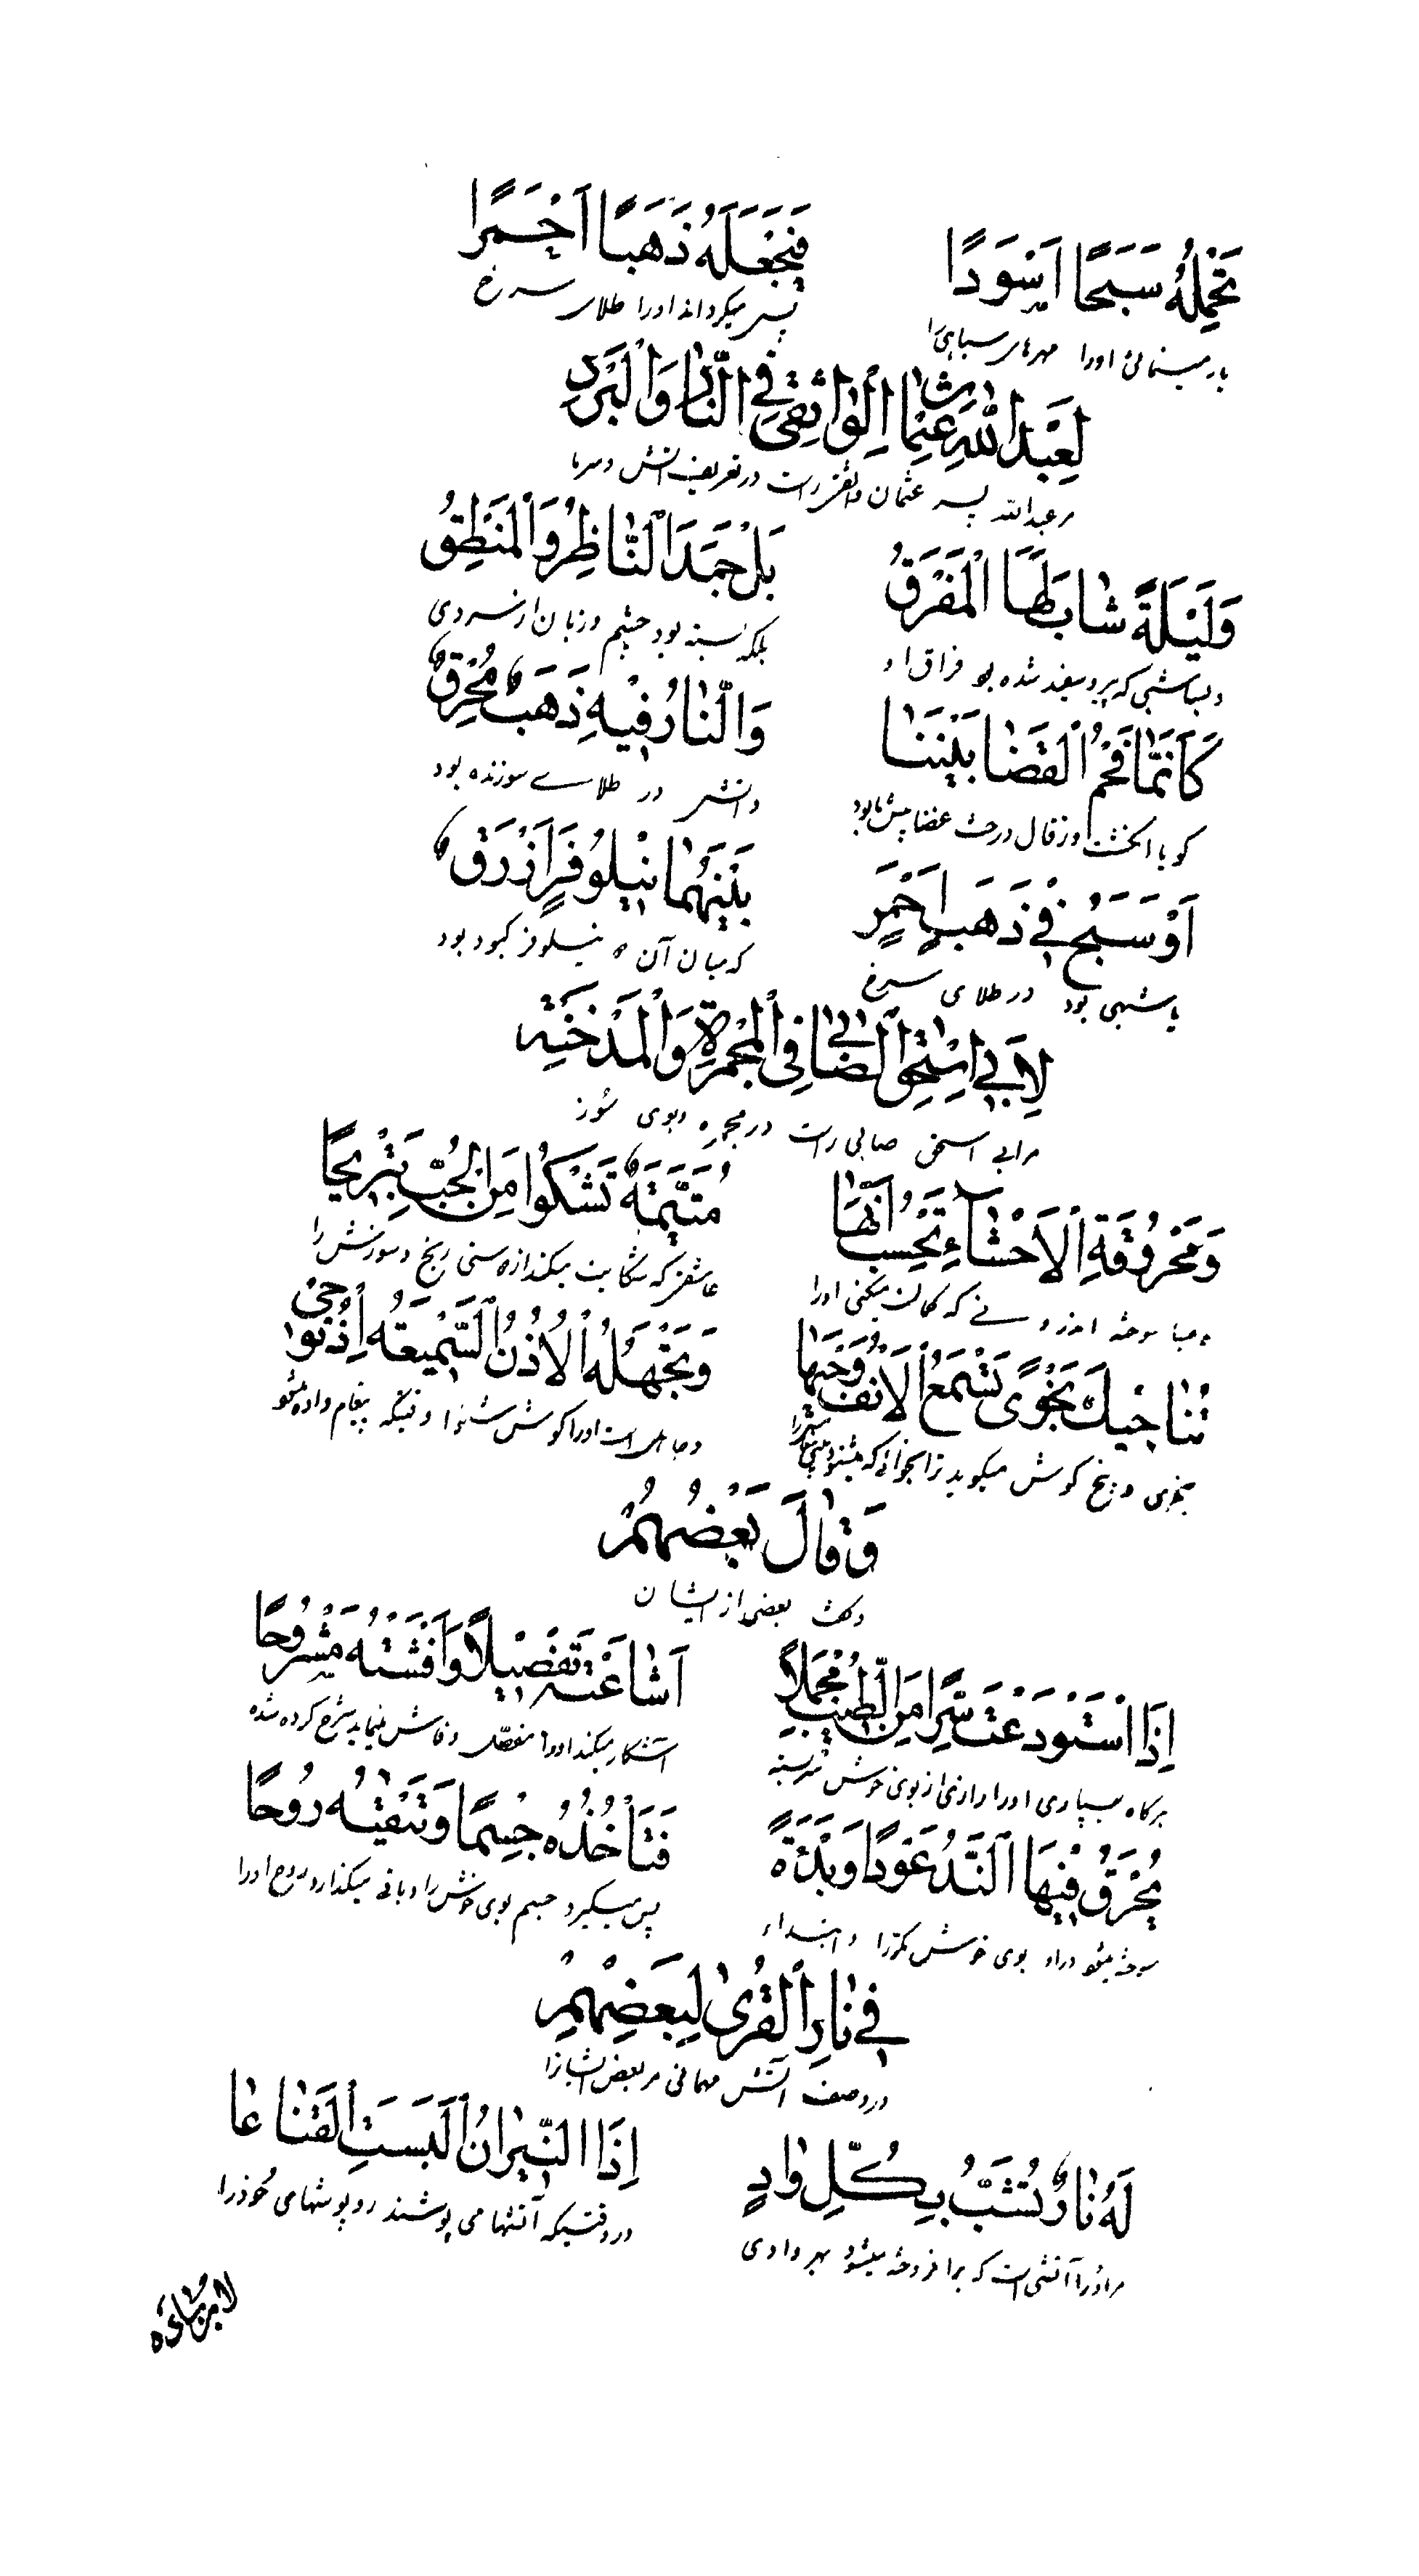 تَحْمِلُهُ سَبَجًا اَسْوَدًا فَتَجْعَلُهُ ذَهَبًا اَحْمَرًا
بار مینمائی اورا مهرهای سیاهی را پس میگرداند اورا طلای سرخ
لِعَبْدِ اللّٰهِ عُثْمَانَ الْوَاثِقِیِّ فِی النَّارِ وَالْبَرْدِ
مر عبدالله پسر عثمان واثقی راست در تعریف آتش و سرما
وَلَیْلَةً شَابَ لَهَا الْمَفْرَقُ بَلْ جَمَدَ النَّاظِرُ وَالْمَنْطِقُ
و بسا شبی که پیر و سفید شده بود فراق او بلکه بسته بود چشم و زبان از سردی
كَاَنَّمَا فَحْمُ الْغَضَا بَیْنَنَا وَالنَّارُ فِیْهِ ذَهَبٌ مُحْرِقٌ
گویا انگشت و زغال درخت غضا پیش ما بود و آتش در طلای سوزنده بود
اَوْ سَبَجٌ فِی ذَهَبٍ اَحْمَرٍ بَیْنَهُمَا نِیْلُوفَرٌ اَزْرَقٌ
یا شبهی بود در طلای سرخ که میان آن نیلوفر کبود بود
لِاَبِی اِسْحٰقَ الصَّابِی فِی الْمِجْمَرَةِ وَالْمِدْخَنَةِ
مر ابی اسحق صابی راست در مجمره و بوی سوز
وَمَحْرُوقَةِ الْاَحْشَآءِ تَحْسِبُ اَنَّهَا مُتَیَّمَةٌ تَشْكُوا مِنَ الْحُبِّ تَبْرِیْحًا
و بسا سوخته اندرونی که گمان میکنی اورا عاشقی که شکایت میکند از دوستی رنج و سوزش را
تُنَاجِیْكَ نَجْوًی تَسْمَعُ الْاَنْفُ وَحْیَهَا وَتَجْهَلُهُ الْاُذْنُ السَّمِیْعَةُ اِذْ یُوْحٰی
میگوید ترا نجوائی که میشنود بینی و جاهل است اورا گوش شنوا وقتیکه پیغام داده میشود
وَقَالَ بَعْضُهُمْ
و گفت بعضی از ایشان
اِذَا اسْتَوْدَعْتَ سِرًّا مِنَ الطِّیْبِ مُجْمَلًا اَشَاعَتْهُ تَفْصِیْلًا وَاَفْشَتْهُ مَشْرُوحًا
هرگاه بسپاری اورا رازی از بوی خوش سربسته آشکار میکند اورا مفصل و فاش مینماید شرح کرده شده
یُحْرَقُ فِیْهَا النَّدُّ عَوْدًا وَبَدْءَةً فَتَأْخُذُهُ جِسْمًا وَتَنْفِیْهِ رُوحًا
سوخته میشود در او بوی خوش مکررا و ابتداء پس میگیرد جسم بوی خوش را و باقی میگذارد روح اورا
فِی نَارِ الْقِرٰی لِبَعْضِهِمْ
در وصف آتش مهمانی مر بعض ایشانرا
لَهُ نَارٌ تُشَبُّ بِكُلِّ وَادٍ اِذَا النِّیْرَانُ اُلْبِسَتِ الْقِنَاعَا
مر اورا آتشی است که برافروخته میشود بهر وادی در وقتیکه آتشها می پوشند روپوشهای خود را